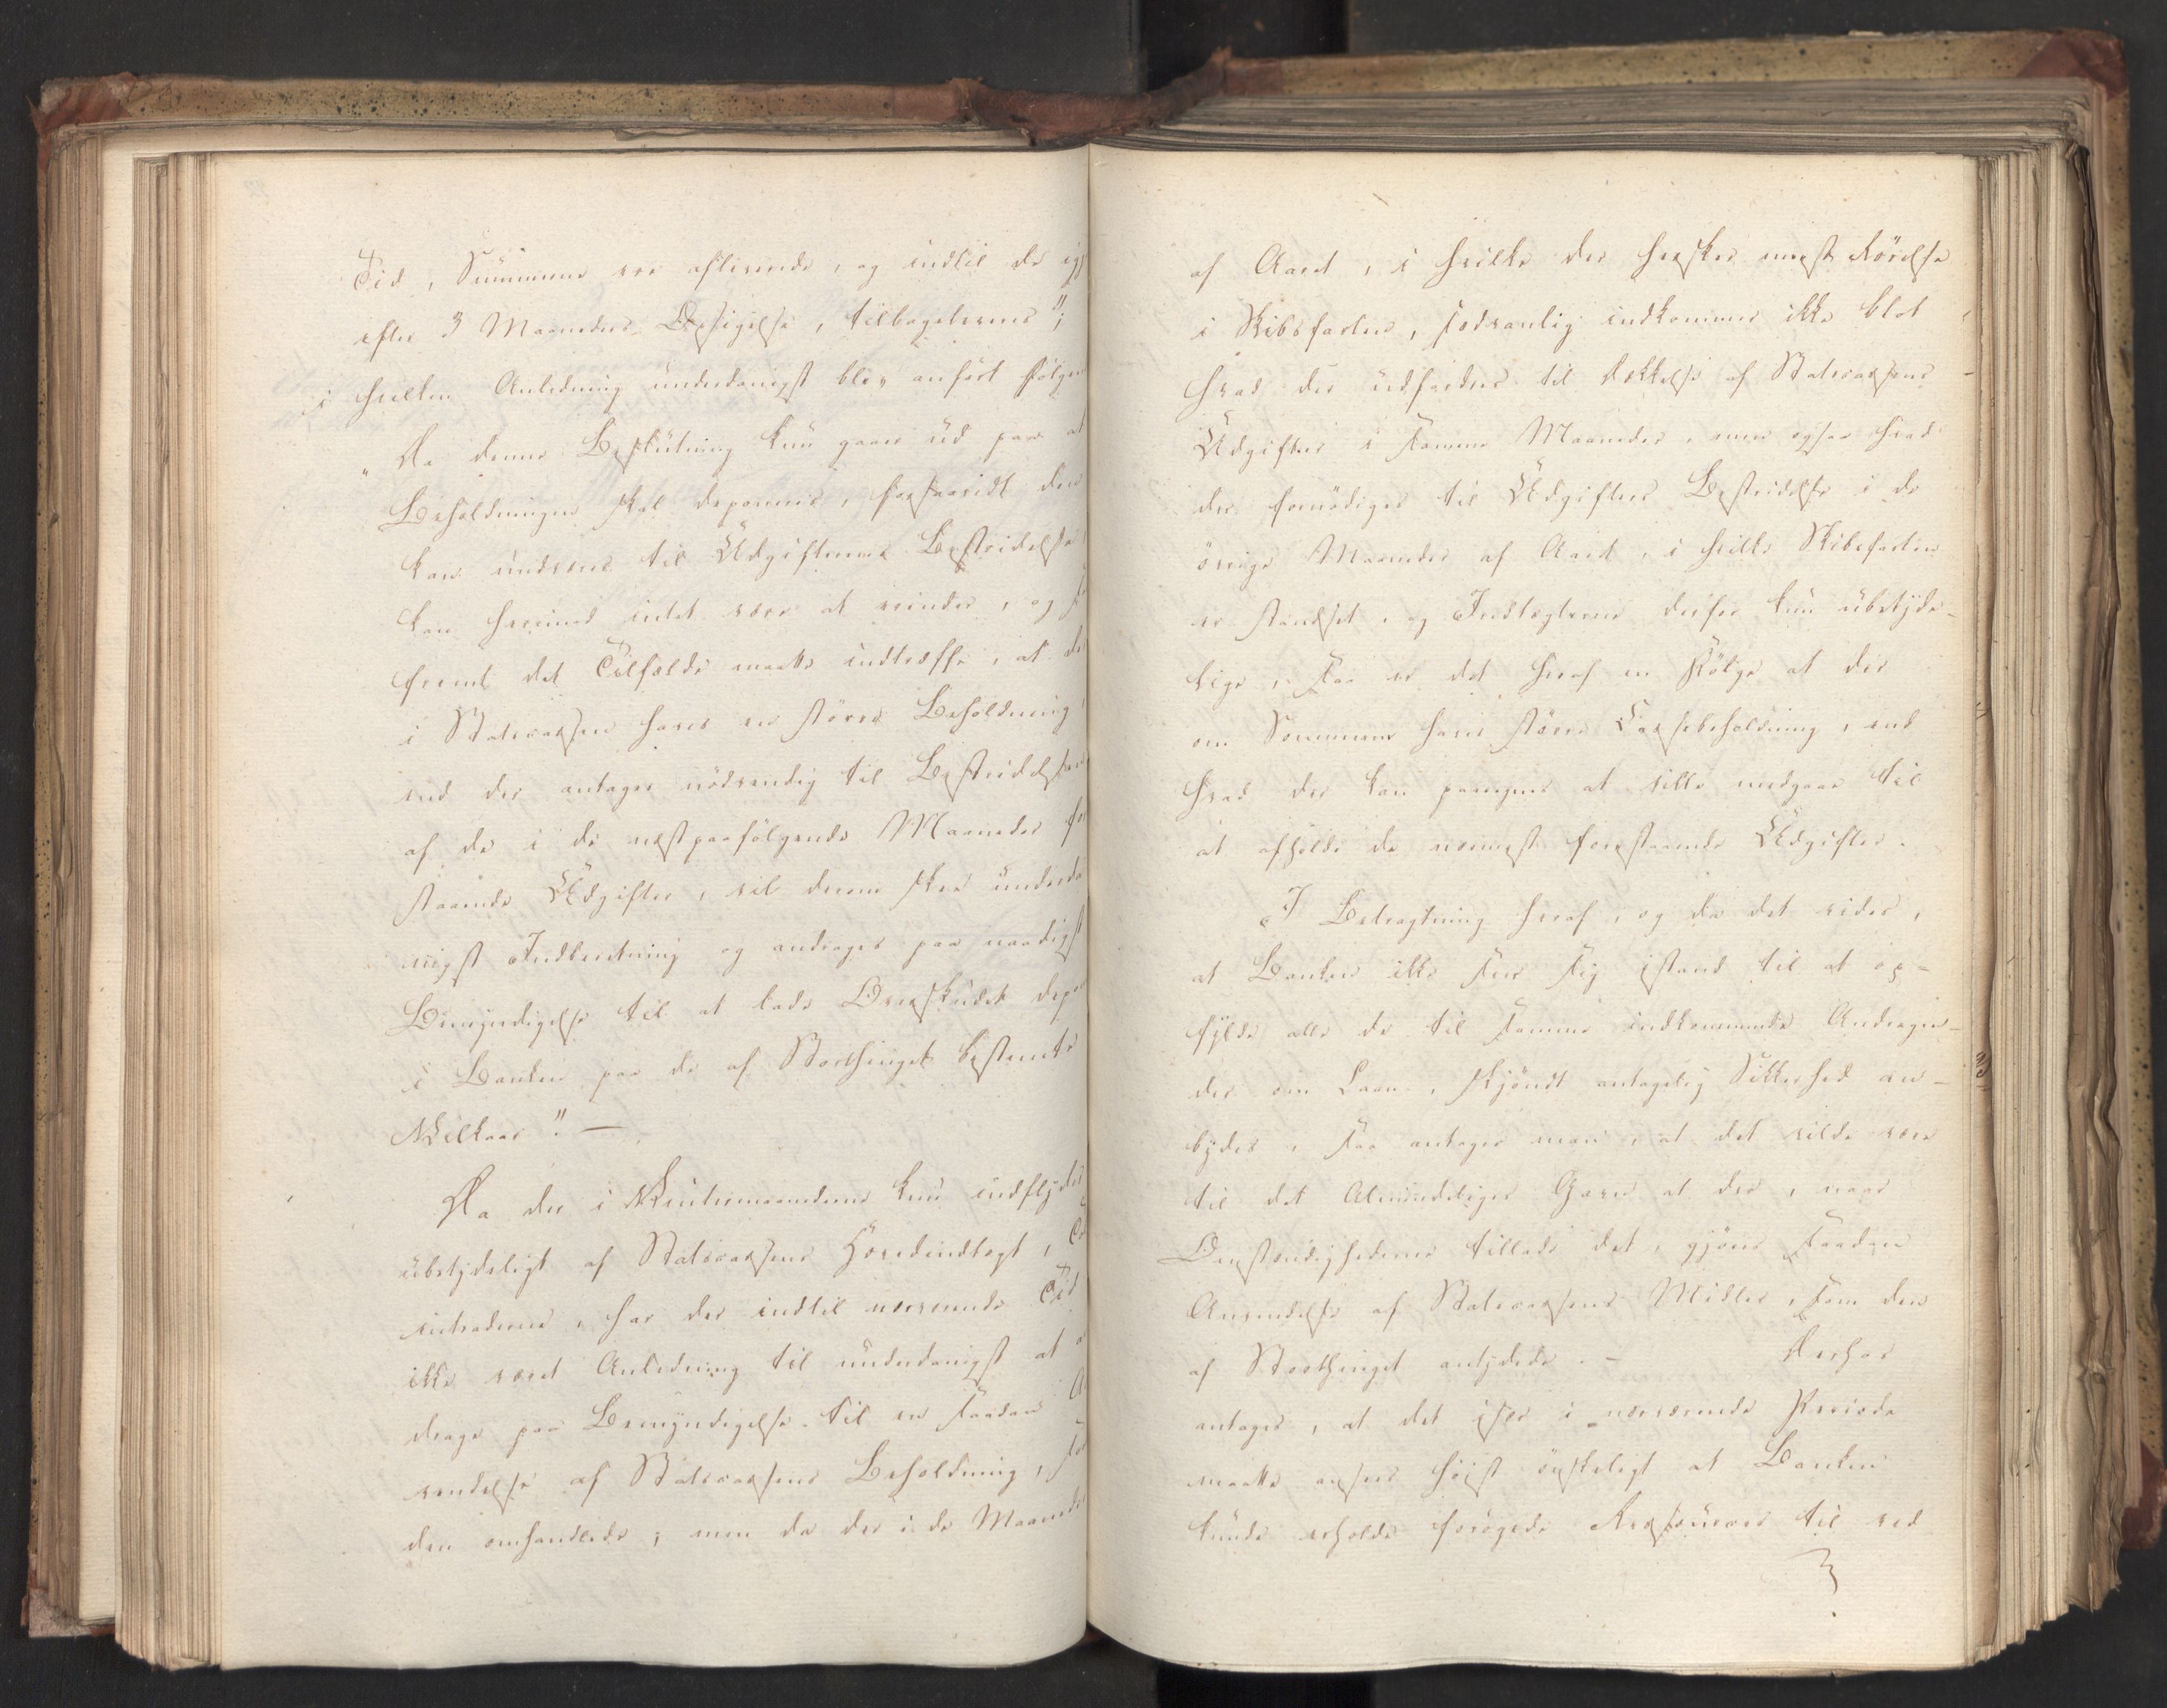 Tid, Summerne ere afleverede, og indtil de igj
efter 3 Maaneders Opsigelse, tilbageleveres";
i hvilken Anledning underdanigst blev anfört fölgen
"Da denne Beslutning kun gaaer ud paa at
Beholdningen skal deponeres, forsaavidt den
kan undværes til Udgifternes Bestridelse,
kan herimod intet være at erindre, og så
fremt det Tilfælde maatte indtræffe, at de
i Statscassen haves en större Beholdning,
end der antages nödvendig til Bestridelsen
af de i de næstpaafölgende Maaneder fo
staaende Udgifter, vil derom skee underda
nigst Indberetning og andrages paa naadigst
Bemyndigelse til at lade Overskudet depo
i Banken paa de af Storthinget bestemte
Vilkaar". —
Da der i Vintermaanederne kun indflyder
ubetydeligt af Statscassens Hovedindtægt, To
intraderne, har der indtil nærværende Tid
ikke været Anledning til underdanigst at a
drage paa Bemyndigelse til en saadan A
vendelse af Statscassens Beholdning, so
den omhandlede; men da der i de Maaneder
af Aaret, i hvilke der hersker meest Rörelse
i Skibsfarten, sædvanlig indkommer ikke blot
hvad der udfordres til Dækkelse af Statscassens
Udgifter i samme Maaneder, men ogsaa hvad
der fornödiges til Udgifters Bestridelse i de
övrige Maaneder af Aaret, i hvilke Skibsfarten
er standset, og Indtægterne derfor kun ubetyde-
lige, saa er det heraf en Fölge at der
om Sommeren haves större Cassebeholdning, end
hvad der kan paaregnes at ville medgaae til
at afholde de nærmest forestaaende Udgifter.
I Betragtning heraf, og da det vides,
at Banken ikke seer sig istand til at op-
fylde alle de til samme indkommende Andragen-
der om Laan, skjöndt antagelig Sikkerhed an-
bydes, saa antages man, at det vilde være
til det Almindeliges Gavn at der, naar
Omstændighederne tillade det, gjöres saadan
Anvendelse af Statscassens Midler, som den
af Storthinget antydede. – Derhos
antages, at det især i nærværende Periode
maatte ansees höist önskeligt at Banken
kunde erholde forögede Ressourcer til ved